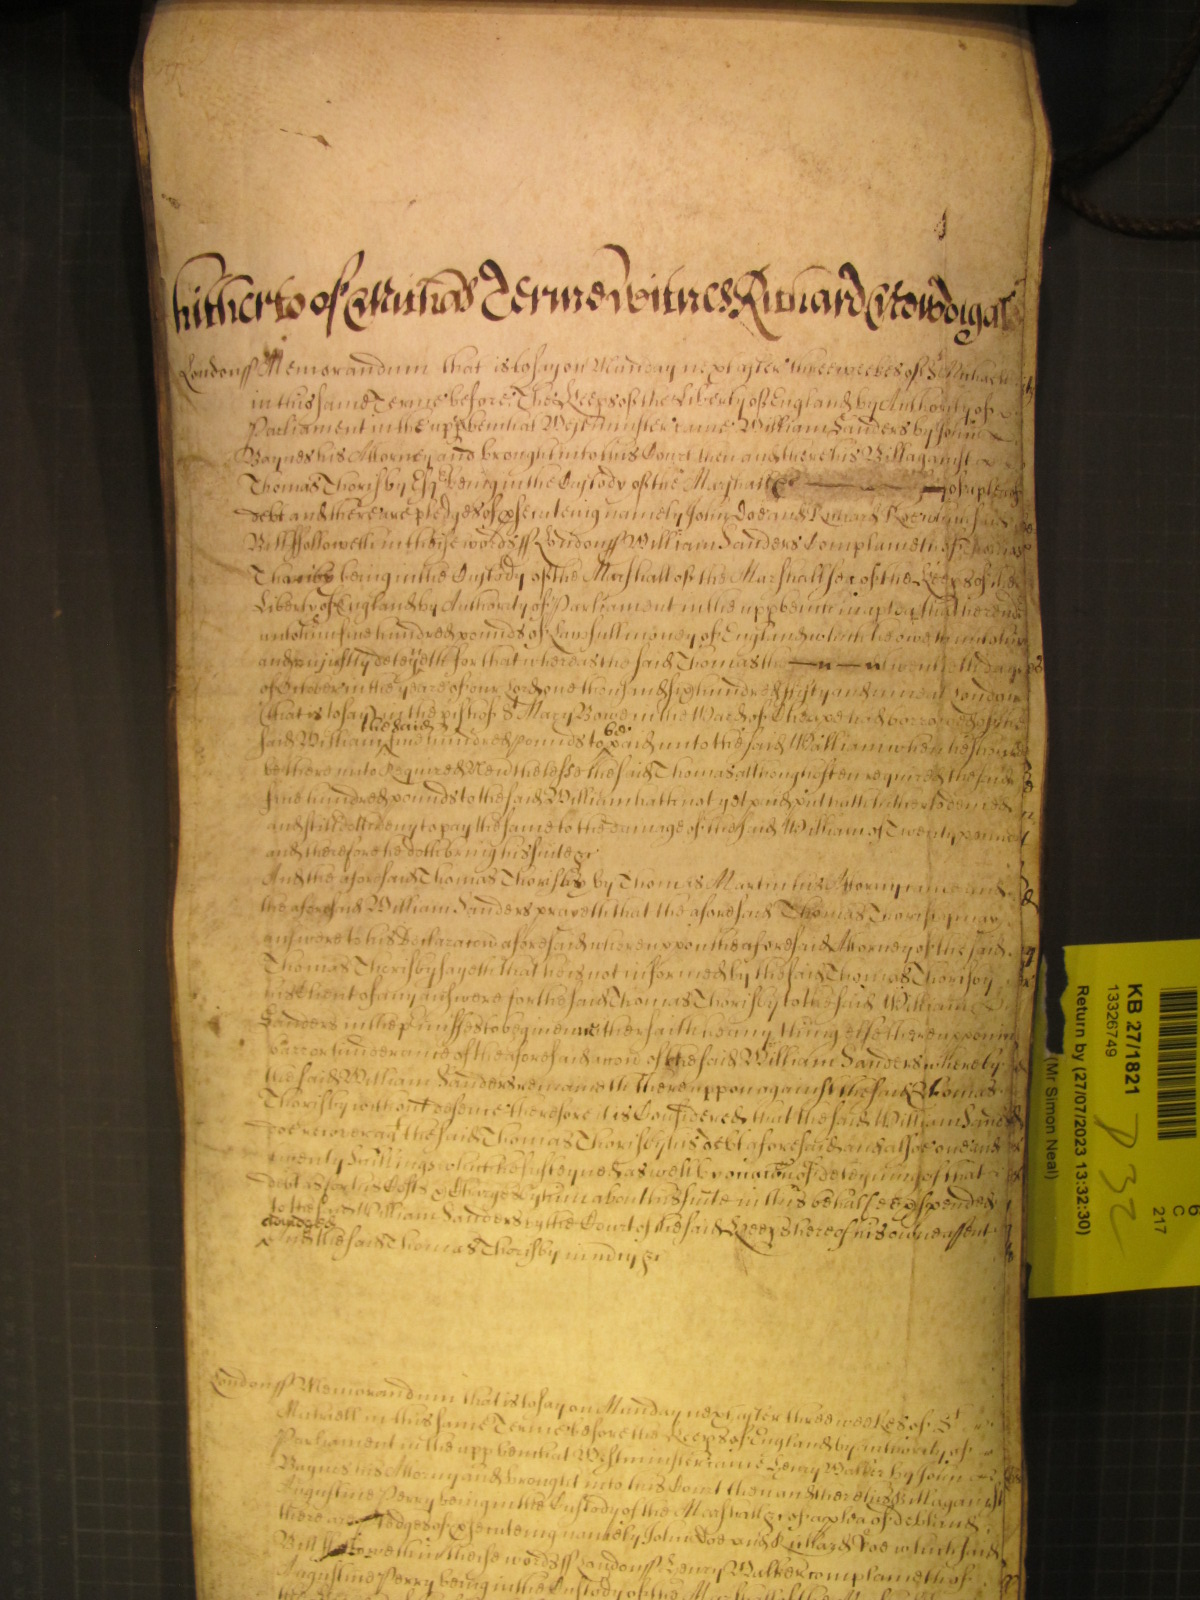 hitherto of Michas Terme witnes Richard
Londonss Memorandum that is to say on Munday next after three weekes of St Michaell
in this same Terme before The Keeps of the Liberty of England by Authority of
Parliament in the upp bench at Westminster came William Sanders by John
Baynes his Attorney and brought into this Court then and there his Bill against
Thomas Thorisby Esqr being in the Custody of the Marshall &c of a plea of
debt and there are pledges of psecuteing namely John Doe and Richard Roe which said
Bill followeth in these words ss Londonss William Sanders Complaineth of Thomas
Thorisby being in the Custody of the Marshall of the Marshallsea of the Keeps of the
Liberty of England by Authority of Parliament in the upp bench in a plea that he rend
unto him five hundred pounds of Lawfull money of England which he oweth unto him
and unjustly deteyneth for that whereas the said Thomas the twentieth day
of October in the yeare of our Lord one thousand six hundred fifty and nine at London
(that is to say) in the pish of St Mary Bowe in the Ward of Cheape had borrowed of the
said William the said five hundred pounds to be paid unto the said William when he should
be there unto Required Neverthelesse the said Thomas although often required the said
five hundred pounds to the said William hath not yet paid but hath hitherto denied
and still doth deny to pay the same to the damage of the said William of Twenty pounds
and therefore he doth bring his suite &c
And the aforesaid Thomas Thorisby by Thomas Martin his Attorny came and
the aforesaid William Sanders prayeth that the aforesaid Thomas Thorisby may
answere to his Declaracon aforesaid whereuppon the aforesaid Attorney of the said
Thomas Thorisby sayeth that he is not informed by the said Thomas Thorisby
his Client of any answere for the said Thomas Thorisby to the said William
Sanders in the pmisses to be given neither saith he any thing else thereuppon in
barr or hinderance of the aforesaid accon of the said William Sanders whereby
the said William Sanders remaineth thereuppon against the said Thomas
Thorisby without defence therefore it is Considered that the said William Sanders
doe recover agt the said Thomas Thorisby his debt aforesaid and alsoe one and
twenty shillings which he susteyned as well by occasion of deteyning of that
debt as for his Costs & Charges by him about his suite in this behalfe expended
to the said William Sanders by the Court of the said Keeps here of his owne assent
adiudged
And the said Thomas Thorisby in mercy &c
Londonss Memorandum that is to say on Munday next after three weekes of St
Michaell in this same Terme before the Keeps of England by authority of
Parliament in the upp bench at Westminster came Henry Walker by John
Baynes his Attorny and brought into this Court then and there his Bill against
Augustine Perry being in the Custody of the Marshall &c of a plea of debt and
there are pledges of psecuteing namely John Doe and Richard Roe which said
Bill followeth in these words ss Londonss Henry Walker complaineth of
Augustine Perry being in the Custody of the Marshall of the
KB 27/1821
13326749
Return by (27/07/2023 13:32:30)
(Mr Simon Neal)
6
C
217
P 32